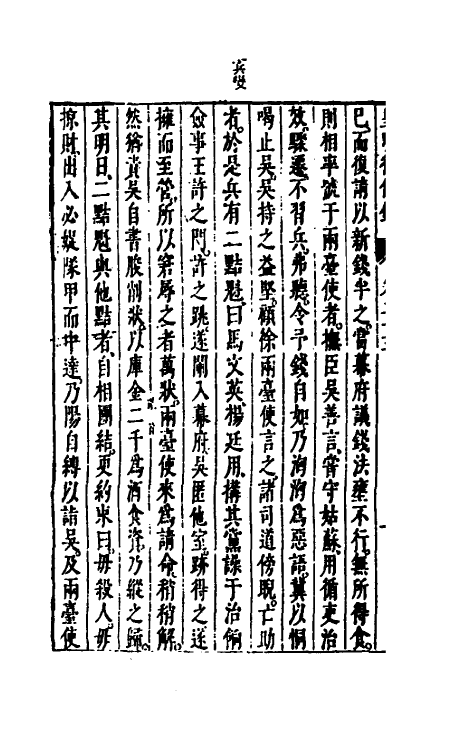 兵變
巳而復請以新錢半之當幕府議錢法壅不行無所得食
則相率號于兩臺使者撫臣吳善言嘗守姑蘇用循吏治
效驟遷不習兵弗聽令予錢自如乃洶洶爲惡語冀以恫
喝止吳吳持之益堅顧徐兩臺使言之諸司道傍睨亡助
者於是兵有二黠魁曰馬文英楊廷用搆其黨譟于治餉
僉事王許之門許之跳遂闌入幕府吳匿他室跡得之遂
擁而至營所以窘辱之者萬狀兩臺使來爲請命稍稍解
然猶責吳自書朘削狀以庫金二千爲酒食資乃縱之歸
其明日二黠魁與他黠者自相團結更約束曰毋殺人毋
掠財出入必縱隊甲而中達乃陽自縛以詣吳及兩臺使